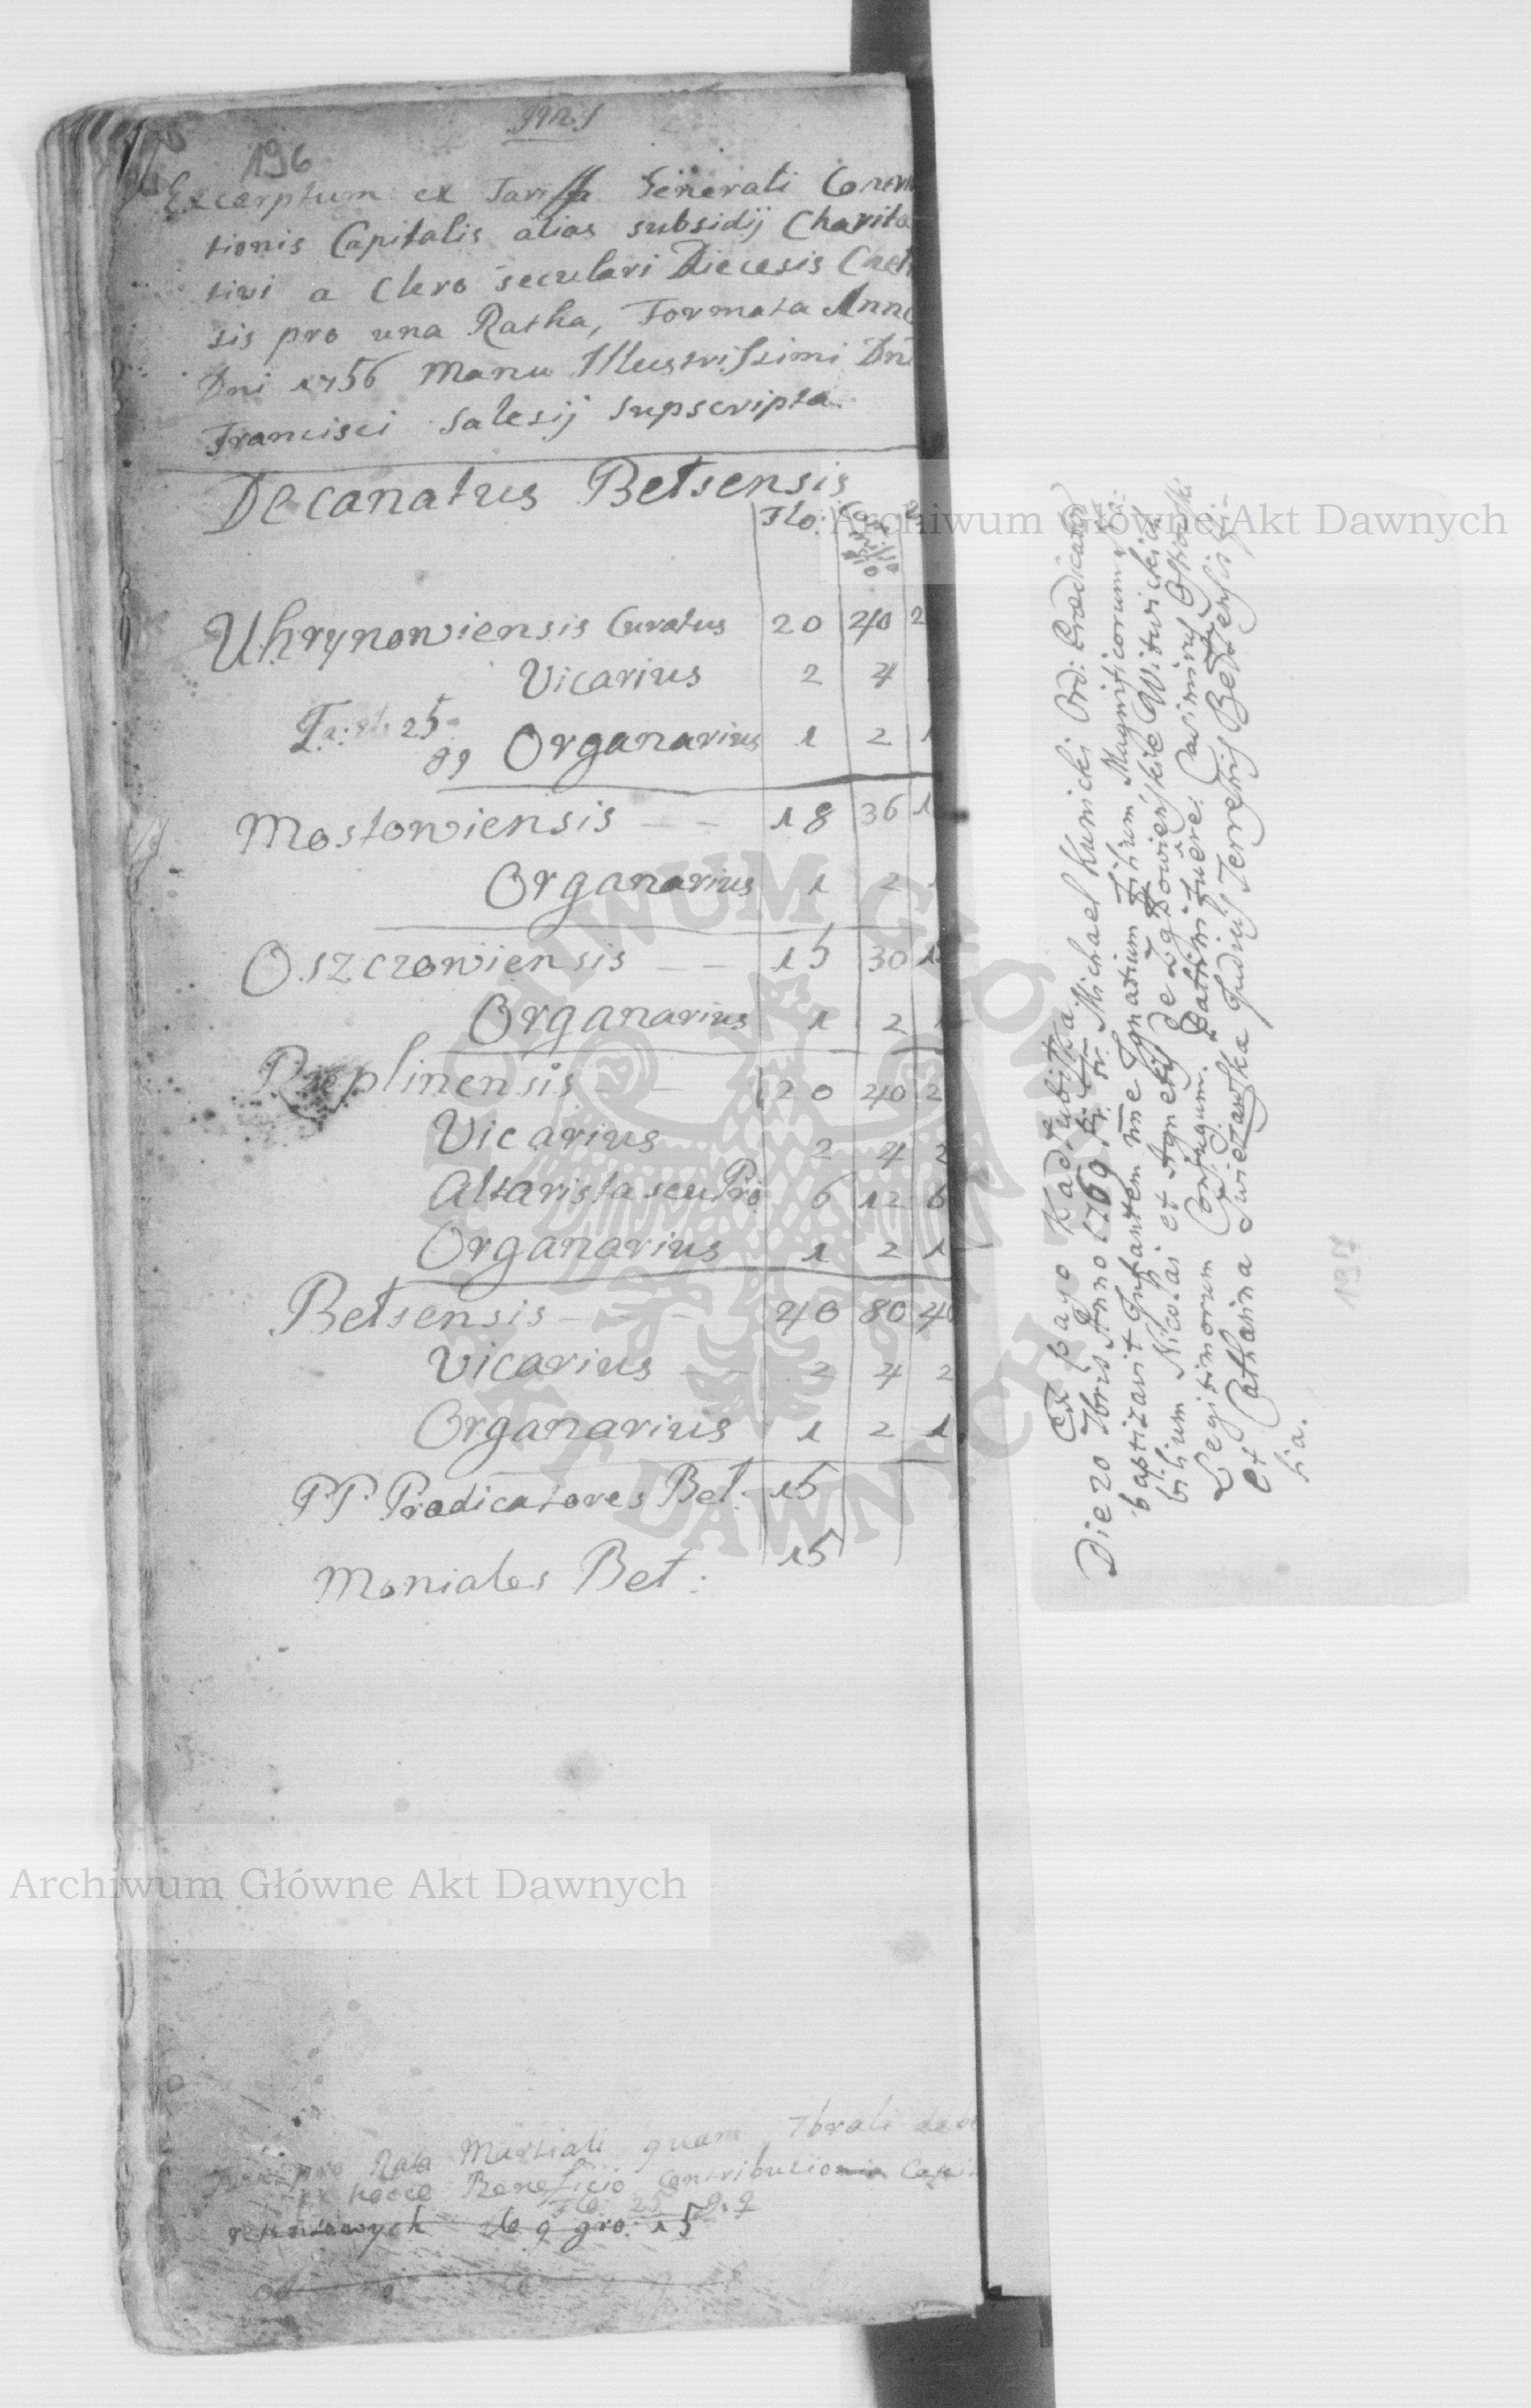 196
Excerptum ex Tariffa Generali Con
tionis Capitalis alias subsidij Charita
tivi a Clero seculari Diecesis Chel
sis pro una Ratha, Formata Anno
Dni 1756 Manu Illustrissimi Dni
Francisci Salesij supscripta.
Decanatus Belsensis
Flo:
Uhrynowiensis Curatus 20 40 2
Vicarius 2 4
25
Organarius 1 2 1
Mostowiensis - - 18 36 1
Organarius 1 2
Oszczowiensis - - 15 30 15
Organarius 1 2 1
Rzeplinensis - - 20 40 2
Vicarius 2 4 2
Altarista seu Pro 6 12 6
Organarius 1 2 1
Belsensis - - - 40 80 40
Vicarius - - 2 4 2
Organarius 1 2 1
PP Prædicatores Bel: 15
Moniales Bel: 15
pro Rata Martiali quam 7brali
Beneficio Contributionis
Flo: 25 g. 9
9 gro: 15
Ex pago Kadłubiska
Die 20 7bris Anno 1769 Michael Kunicki Ord: Prædicator
baptizavit Infantem nne Ignatium Filium Magnificorum
bilium Nicolai et Agnetis de Witwickich
Legitimorum Conjugum. Patrini fuere: Casimirus Ostrowski
et Catharina Swiezawska Judicis Terrestris Belzensis fi-
lia.
197
Archiwum Główne Akt Dawnych
Archiwum Główne Akt Dawnych
ARCHIWUM GŁÓWNE
AKT DAWNYCH